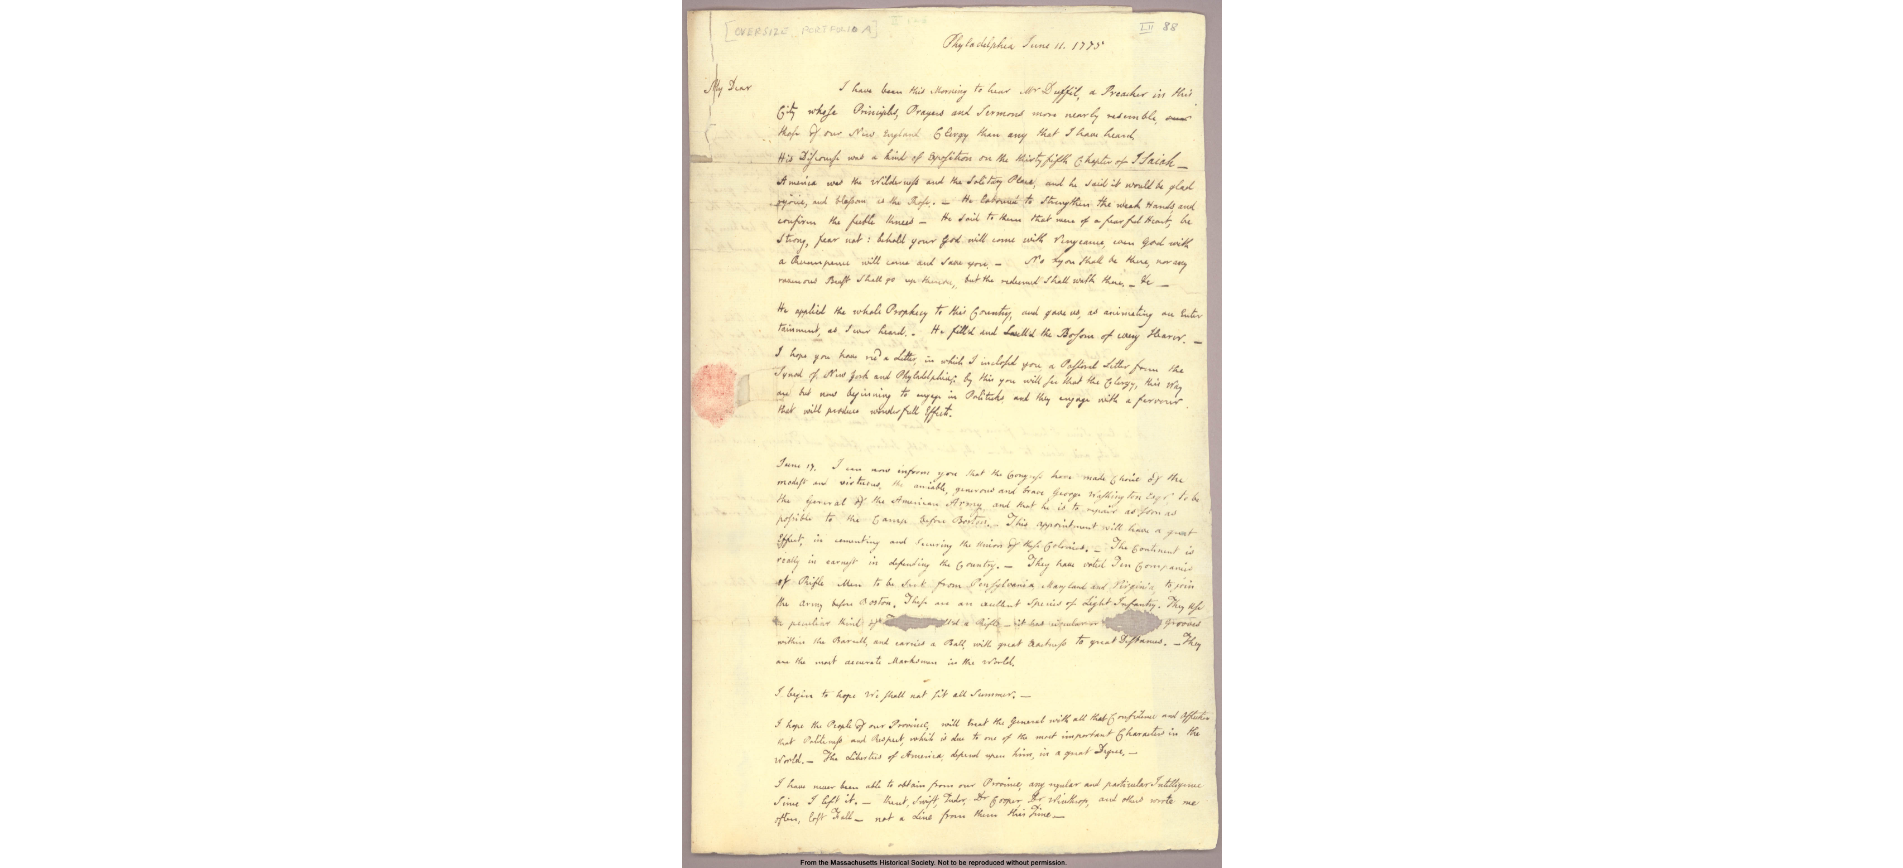 [OVERSIZE PORTFOLIO A]
LII 88
Phyladelphia June 11. 1775
My Dear
I have been this Morning to hear Mr Duffil, a Preacher in this
City whose Principles, Prayers and Sermons more nearly resemble,
those of our New England Clergy than any that I have heard.
His Discourse was a kind of Exposition on the thirty fifth Chapter of Isaiah —
America was the Wilderness and the Solitary Place, and he said it would be glad
rejoice, and blossom as the Rose. — He laboured to strengthen the weak Hands, and
confirm the feeble Knees — He said to them that were of a fearful Heart, be
Strong, fear not: behold your God will come with Vengeance, even God with
a Recompence will come and save you. — No Lyon shall be there, nor any
ravenous Beast shall go up thereon, but the redeemed shall walk there. — &c —
He applied the whole Prophecy to this Country, and gave us, as animating an Enter
tainment, as I ever heard. . He fill'd and swell'd the Bosom of every Hearer. —
I hope you have rec'd a Letter, in which I inclosed you a Pastoral Letter from the
Synod of New York and Phyladelphia; by this you will see that the Clergy, this Way
are but now beginning to engage in Politicks and they engage with a fervour
that will produce wonderfull Effects.
June 17. I can now inform you that the Congress have made Choice of the
modest and virtuous, the amiable, generous and brave George Washington Esqr. to be
the General of the American Army, and that he is to repair as soon as
possible to the Camp before Boston. — This appointment will have a great
Effect, in cementing and securing the Union of these Colonies. — The Continent is
really in earnest in defending the Country. — They have voted Ten Companies
of Rifle Men to be sent from Pensylvania, Maryland and Virginia, to join
the army before Boston. These are an excellent Species of Light Infantry. They use
a peculiar Kind of a Rifle — it has Grooves
within the Barrell, and carries a Ball, with great Exactness to great Distances. — They
are the most accurate Marksmen in the World.
I begin to hope We shall not sit all Summer. —
I hope the People of our Province, will treat the General with all that Confidence and Affection
that Politeness and Respect, which is due to one of the most important Characters in the
World. — The Liberties of America, depend upon him, in a great Degree. —
I have never been able to obtain from our Province, any regular and particular Intelligence
Since I left it. — Kent, Swift, Tudor, Dr Cooper, Dr Winthrop, and others wrote me
often, last Fall — not a Line from them this Time —
From the Massachusetts Historical Society. Not to be reproduced without permission.